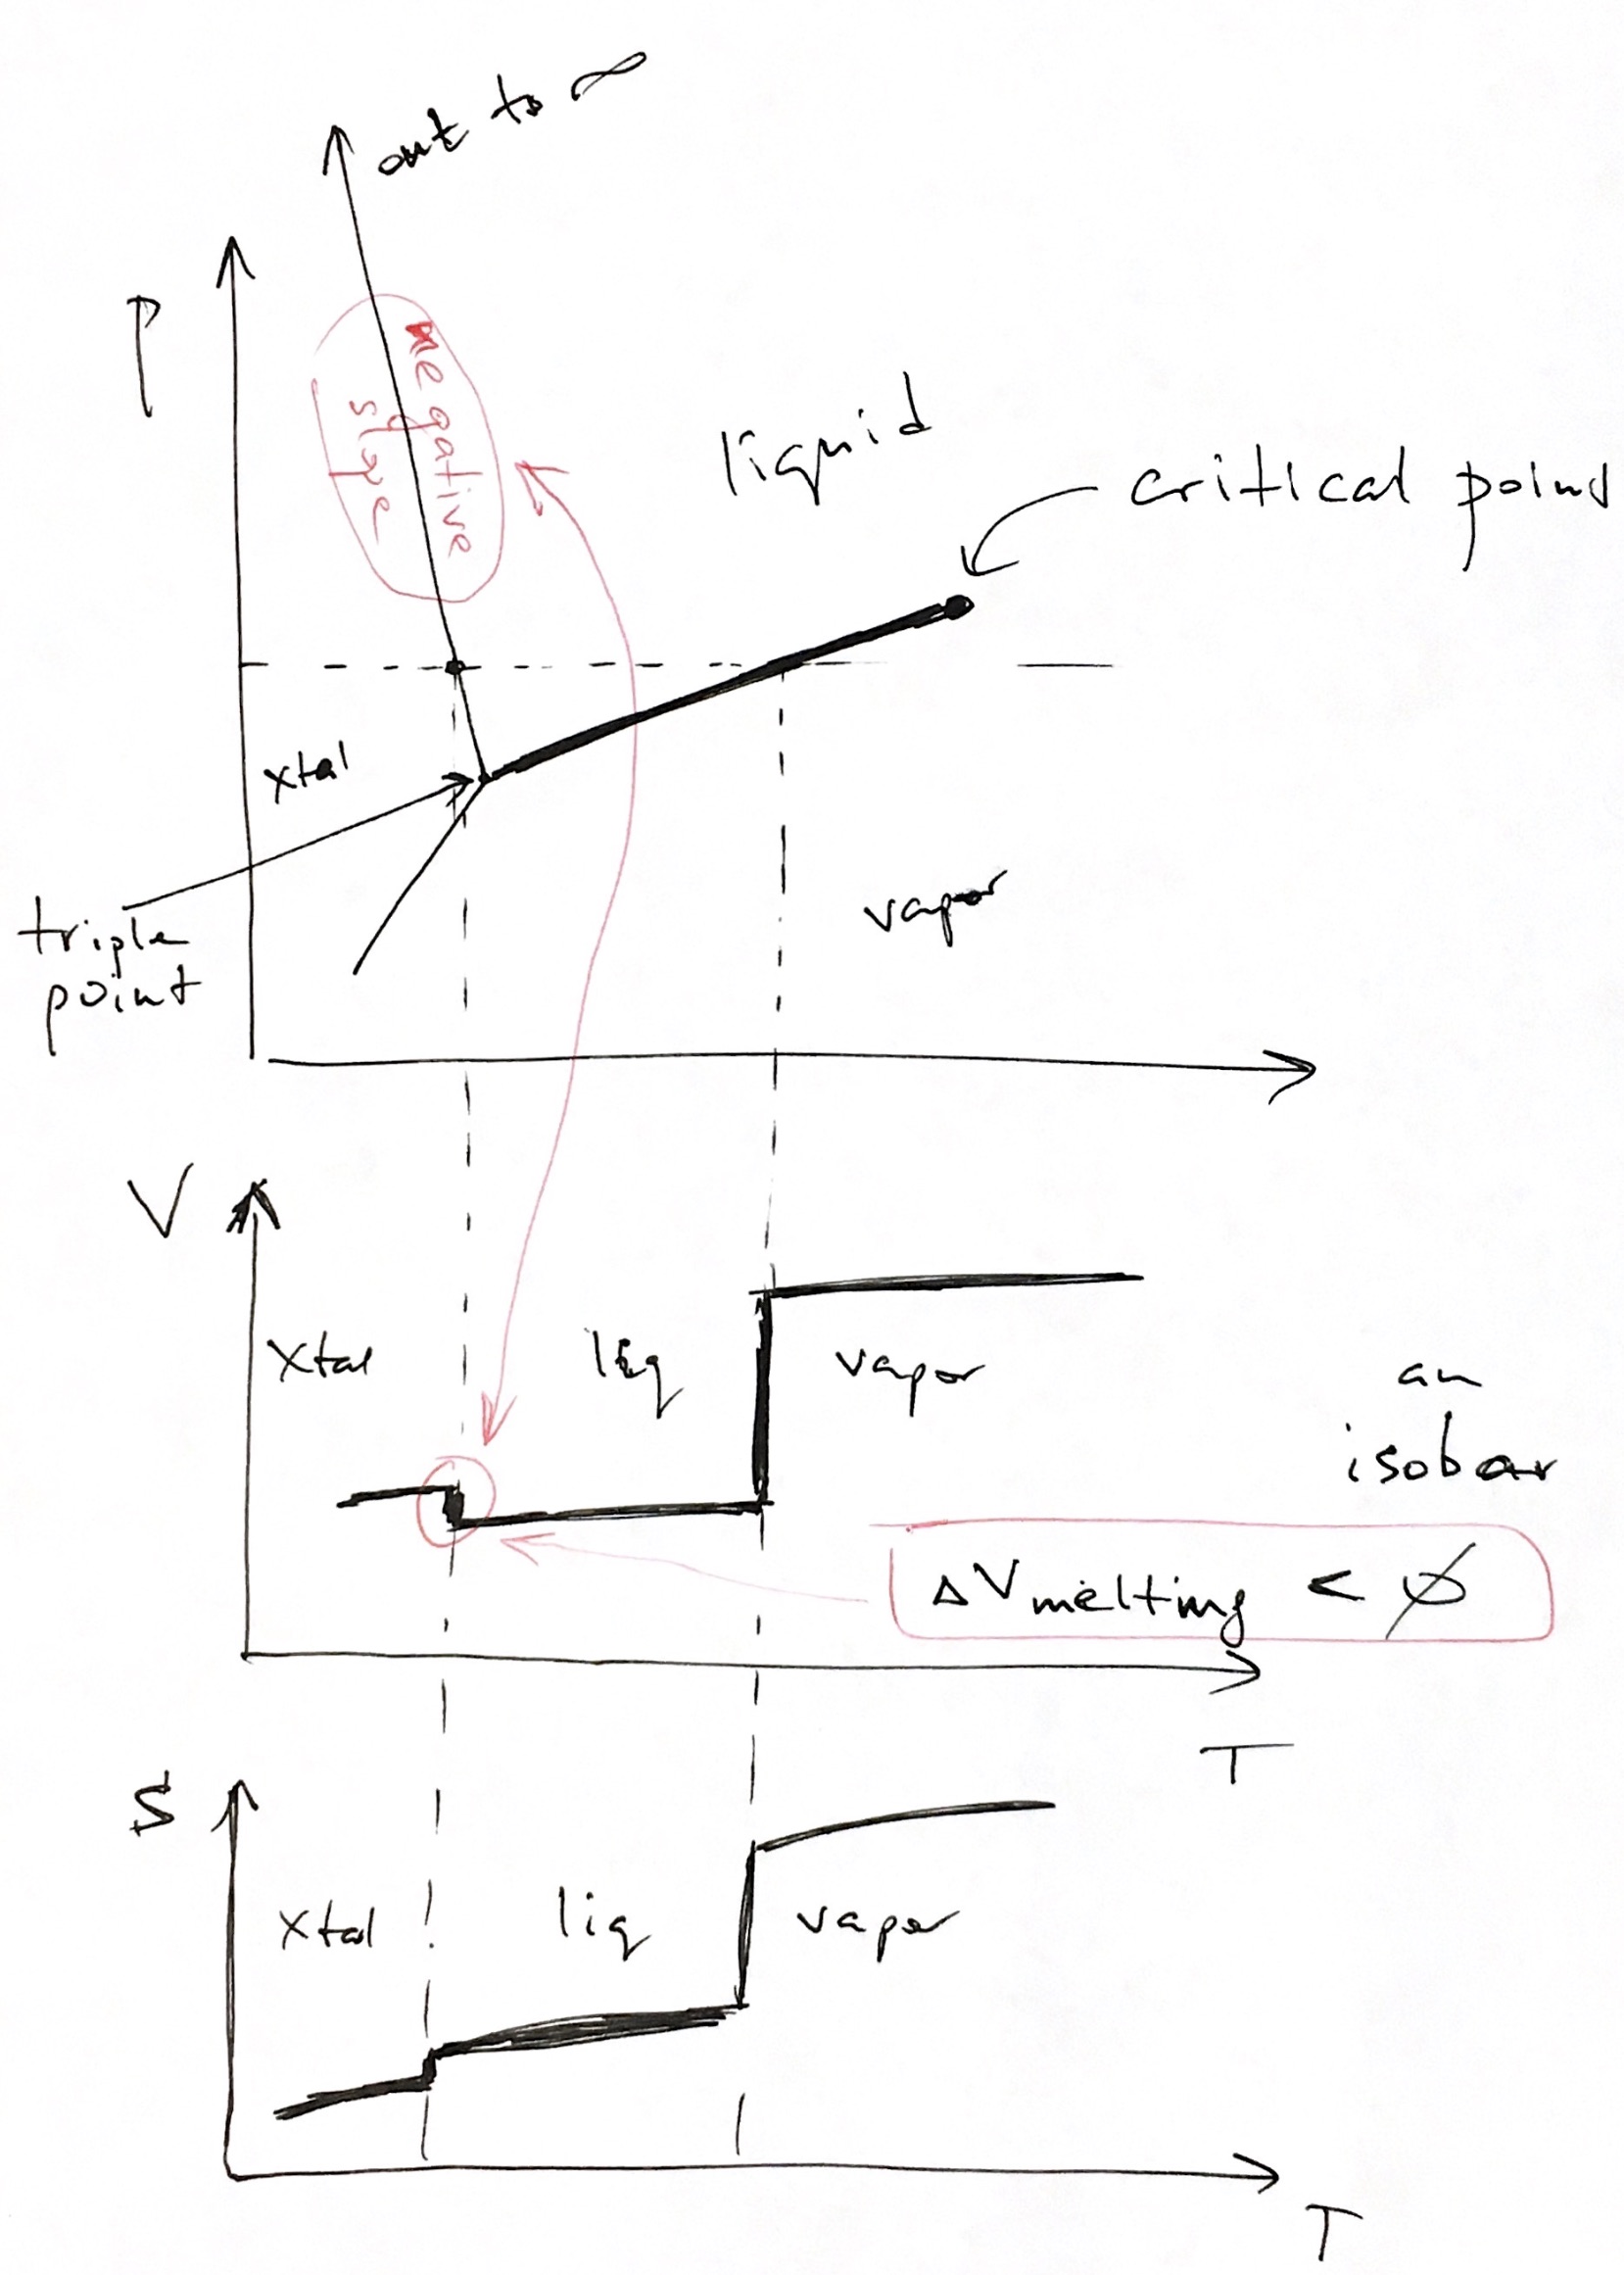 out to ∞
P
negative
slope
liquid
critical point
xtal
vapor
triple
point
V
xtal
liq
vapor
an
isobar
ΔVmelting < ∅
T
S
xtal
liq
vapor
T